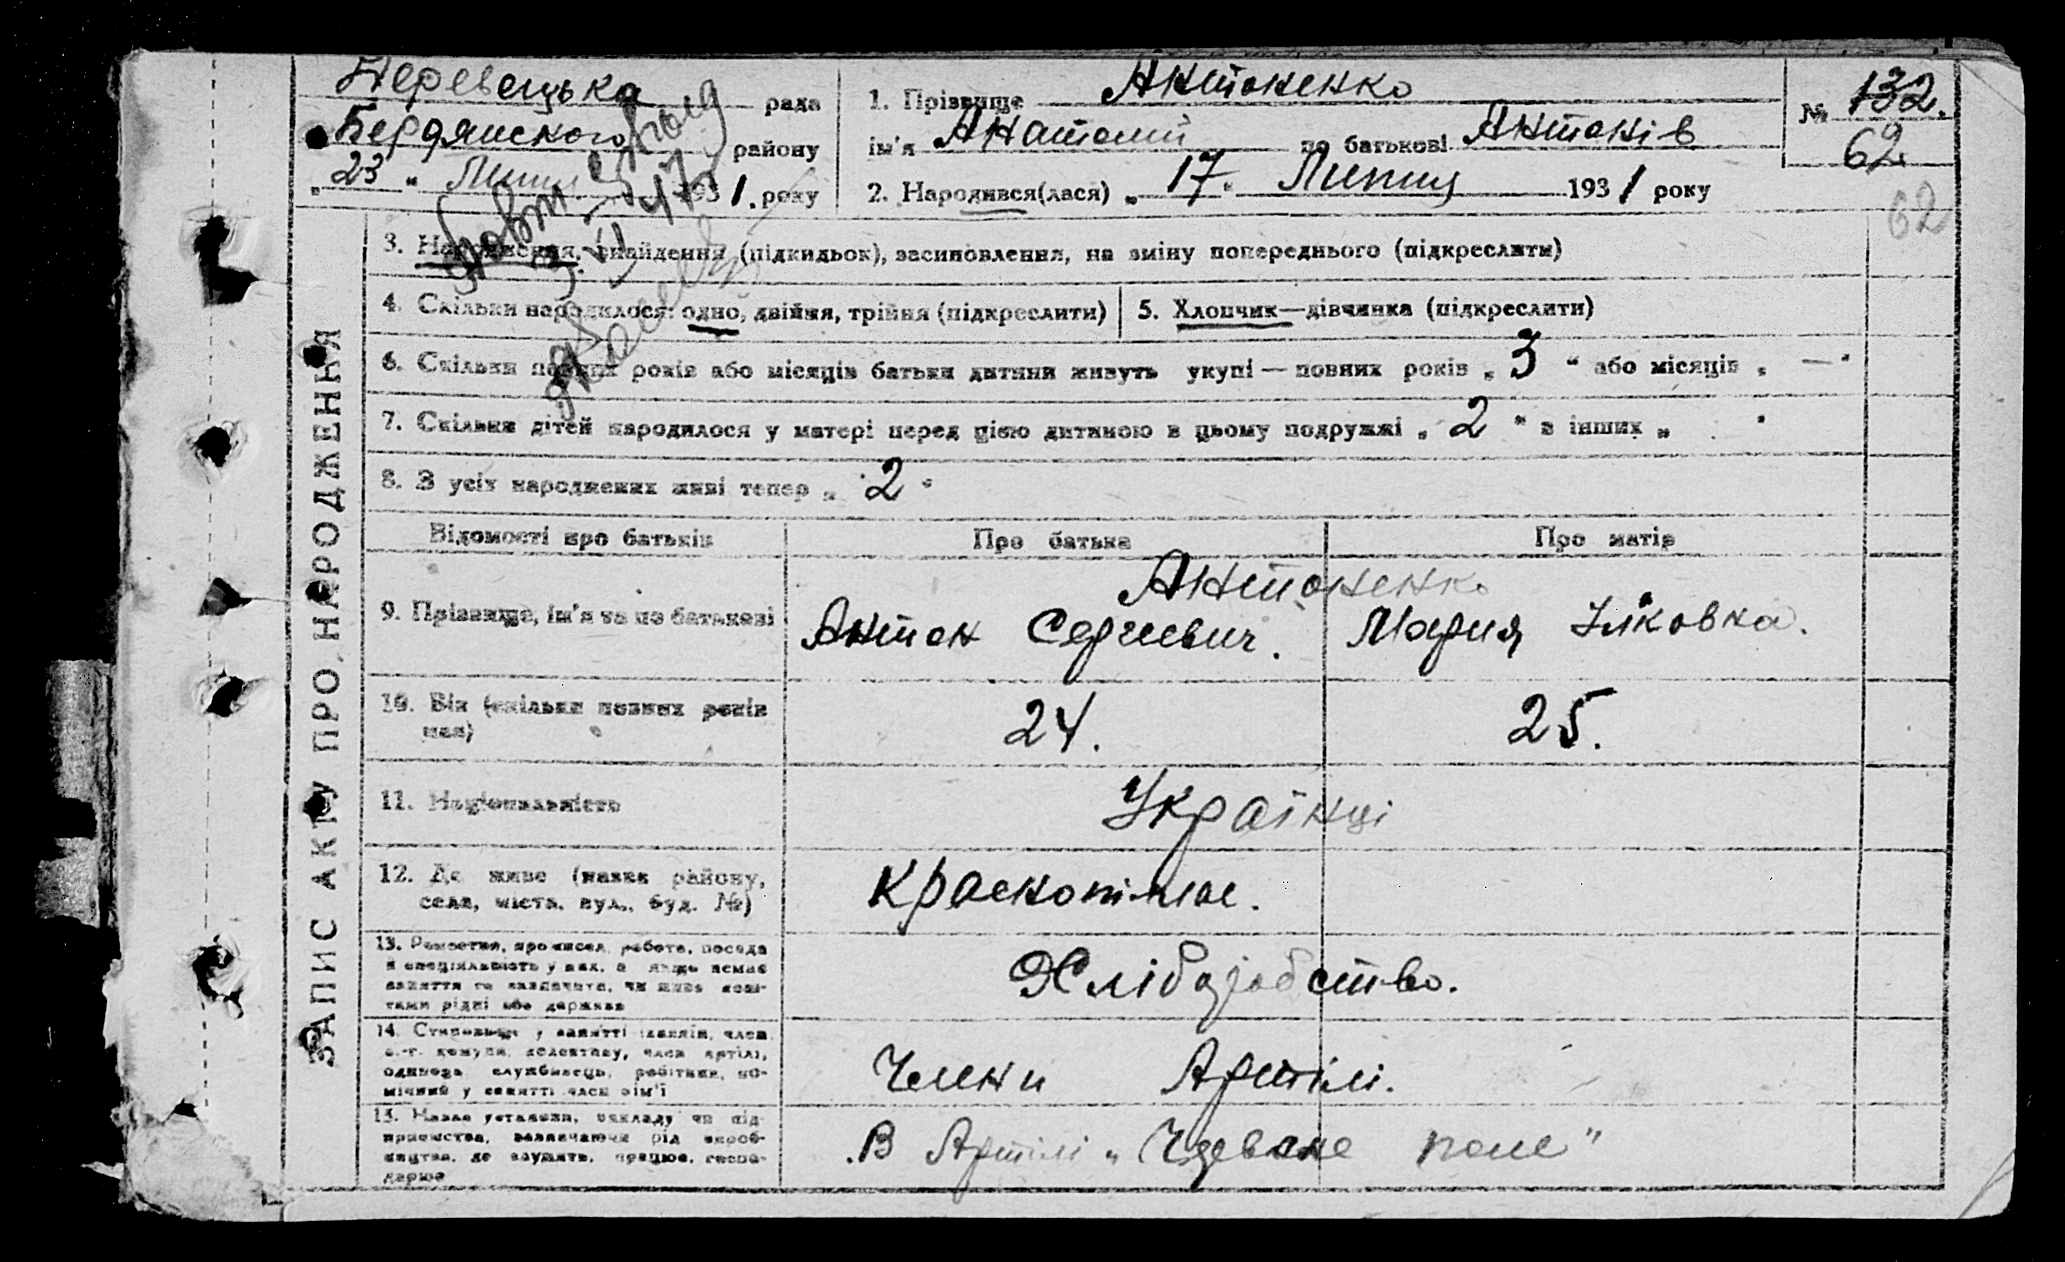 Деревецька рада
Бердянского району
„23“ Липня 1931. року
Повт свід
3/VI 47 г
1. Прізвище Антоненко
ім'я Анатолий по батькові Антонів
2. Народився(лася) „17“ Липня 1931 року
№ 132.
62
62
ЗАПИС АКТУ ПРО НАРОДЖЕННЯ
3. Народження, знайдення (підкидьок), засиновлення, на зміну попереднього (підкреслити)
4. Скільки народилося: одно, двійня, трійня (підкреслити) 5. Хлопчик—дівчинка (підкреслити)
6. Скільки повних років або місяців батьки дитини живуть укупі — повних років „3“ або місяців „—“
7. Скільки дітей народилося у матері перед цією дитиною в цьому подружжі „2“ в інших „ “
8. З усіх народжених живі тепер „2“
Відомості про батьків Про батька Про матір
Антоненко
9. Прізвище, ім'я та по батькові Антон Сергиевич. Мария Яковна.
10. Вік (скільки повних років 24. 25.
має)
11. Національність Українці
12. Де живе (назва району,
села, міста, вул., буд. №)
13. Ремество, промисел, робота, посада
й спеціяльність у них, а якщо немає
заняття то зазначити, чи живе кош-
тами рідні або держави
Хліборобство.
14. Становище у занятті (хазяїн, член
с.-г. комуни, колективу, член артілі,
одинока службовець, робітник, по-
мічний у занятті член сім'ї
Члени Артілі.
15. Назва установи, закладу чи під-
приємства, зазначаючи рід вироб-
ництва, де служить, працює, госпо-
дарює
В Артілі „ поле“